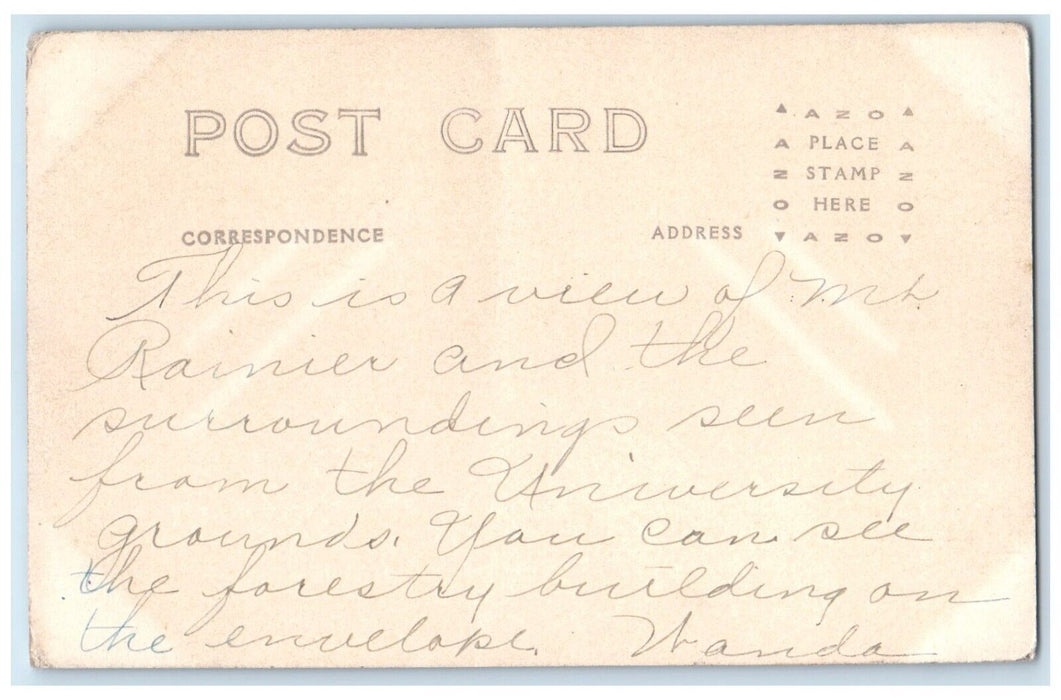 POST CARD
▲ A Z O ▲
A PLACE A
Z STAMP Z
O HERE O
▼ A Z O ▼
CORRESPONDENCE
ADDRESS
This is a view of Mt.
Rainier and the
surroundings seen
from the University
grounds. You can see
the forestry building on
the envelope. Wanda